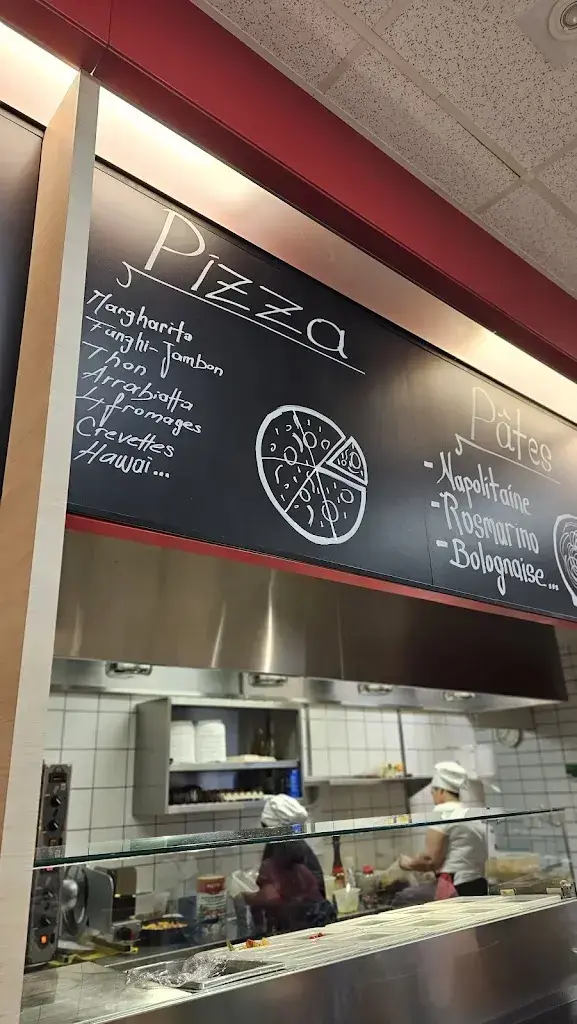 Pizza
Margharita
Funghi-Jambon
Thon
Arrabiatta
4 fromages
Crevettes
Hawai...
Pâtes
-Napolitaine
-Rosmarino
-Bolognaise...